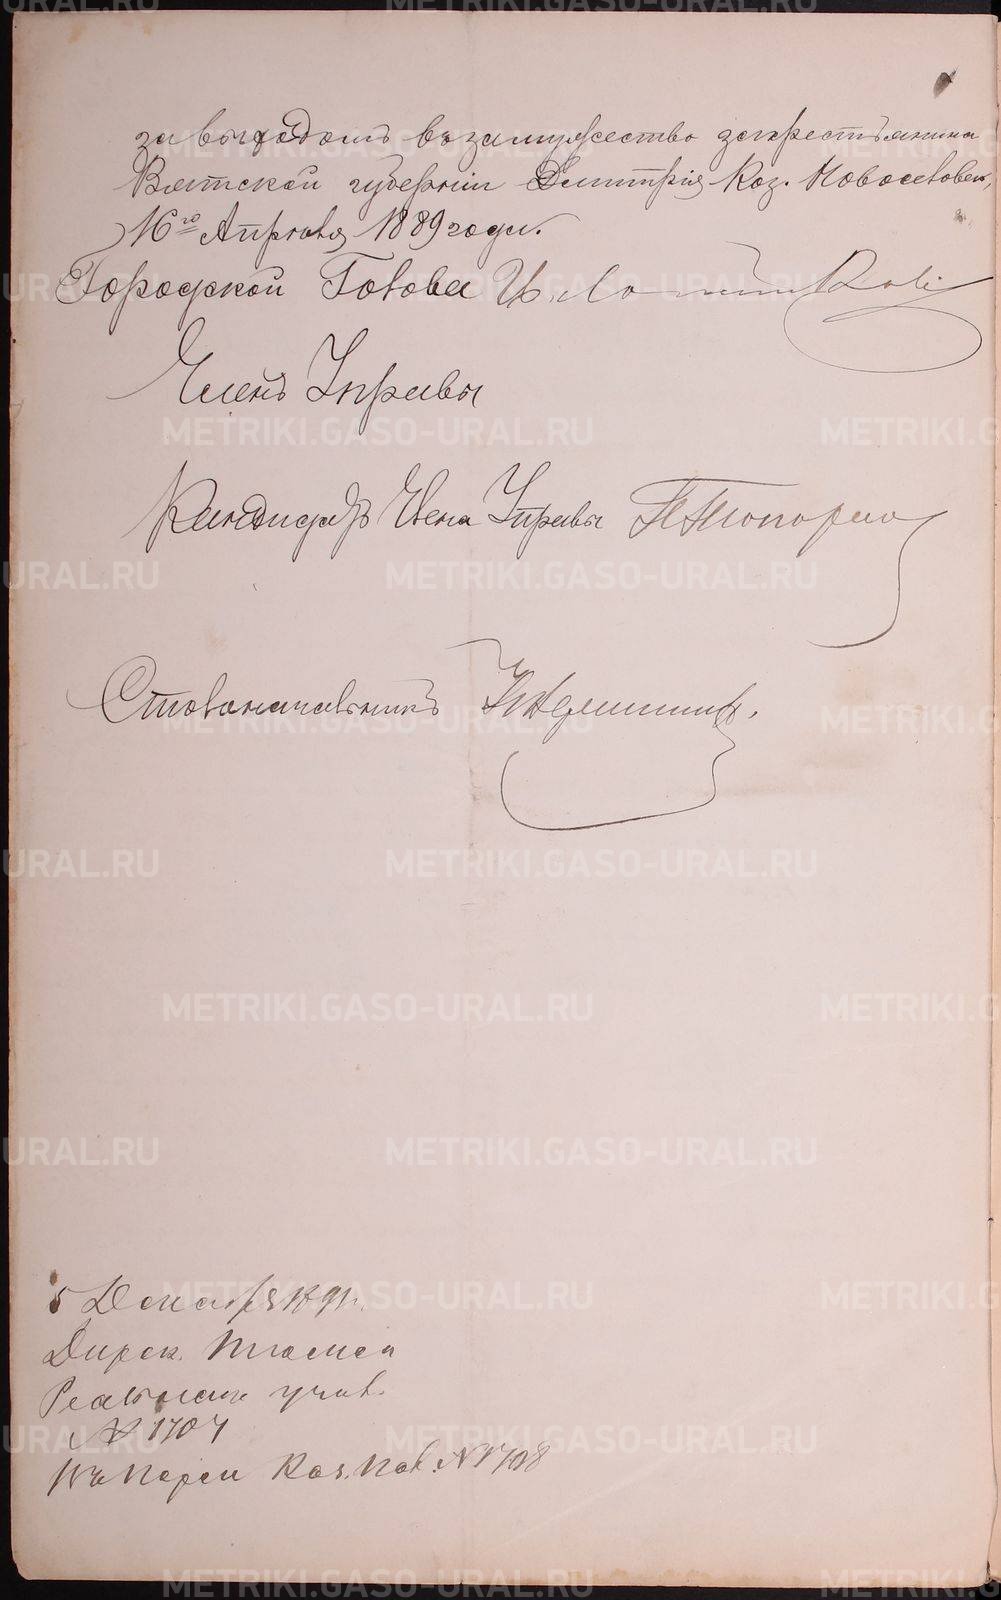 за выходомъ въ замужество за крестьянина
Вятской губерніи Дмитрія Коз. Новоселова,
16го Апрѣля 1889 года.
Городской Голова И.
Членъ Управы
Кандидатъ Члена Управы П. Топор
Столоначальникъ
5 Декабря 1891 г.
Дирек.
Реальнаго учил.
№ 1704
Каз. Пал. № 1708
METRIKI.GASO-URAL.RU